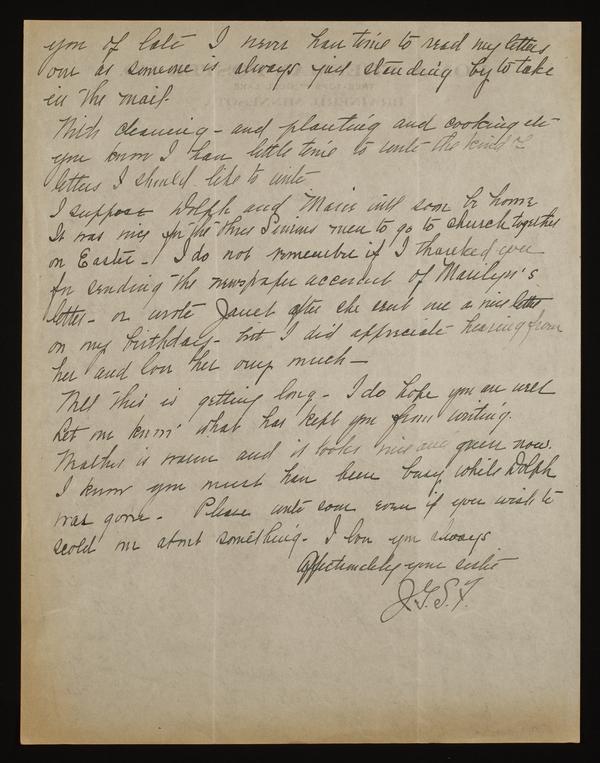 you of late I never have time to read my letters
over as someone is always just standing by to take
in the mail.
With cleaning - and planting and cooking etc
you know I have little time to write the kind of
letters I should like to write
I suppose Dolph and Marie will soon be home
It was nice for the three men to go to church together
on Easter - I do not remember if I thanked you
for sending the newspaper account of Marilyn's
letter - or wrote Janet after she sent me a nice letter
on my birthday - but I did appreciate hearing from
her and love her very much -
Well this is getting long - I do hope you are well
Let me know what has kept you from writing.
Weather is warm and it looks nice and green now.
I know you must have been busy while Dolph
was gone - Please write soon even if you wish to
scold me about something - I love you always
Affectionately your sister
J.G.S.F.